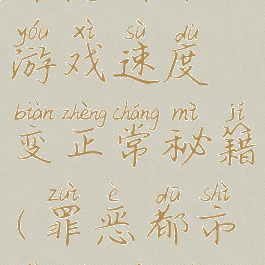 yóu xì sù dù
游戏速度
biàn zhèng cháng mì jí
变正常秘籍
zuì è dū shì
(罪恶都市